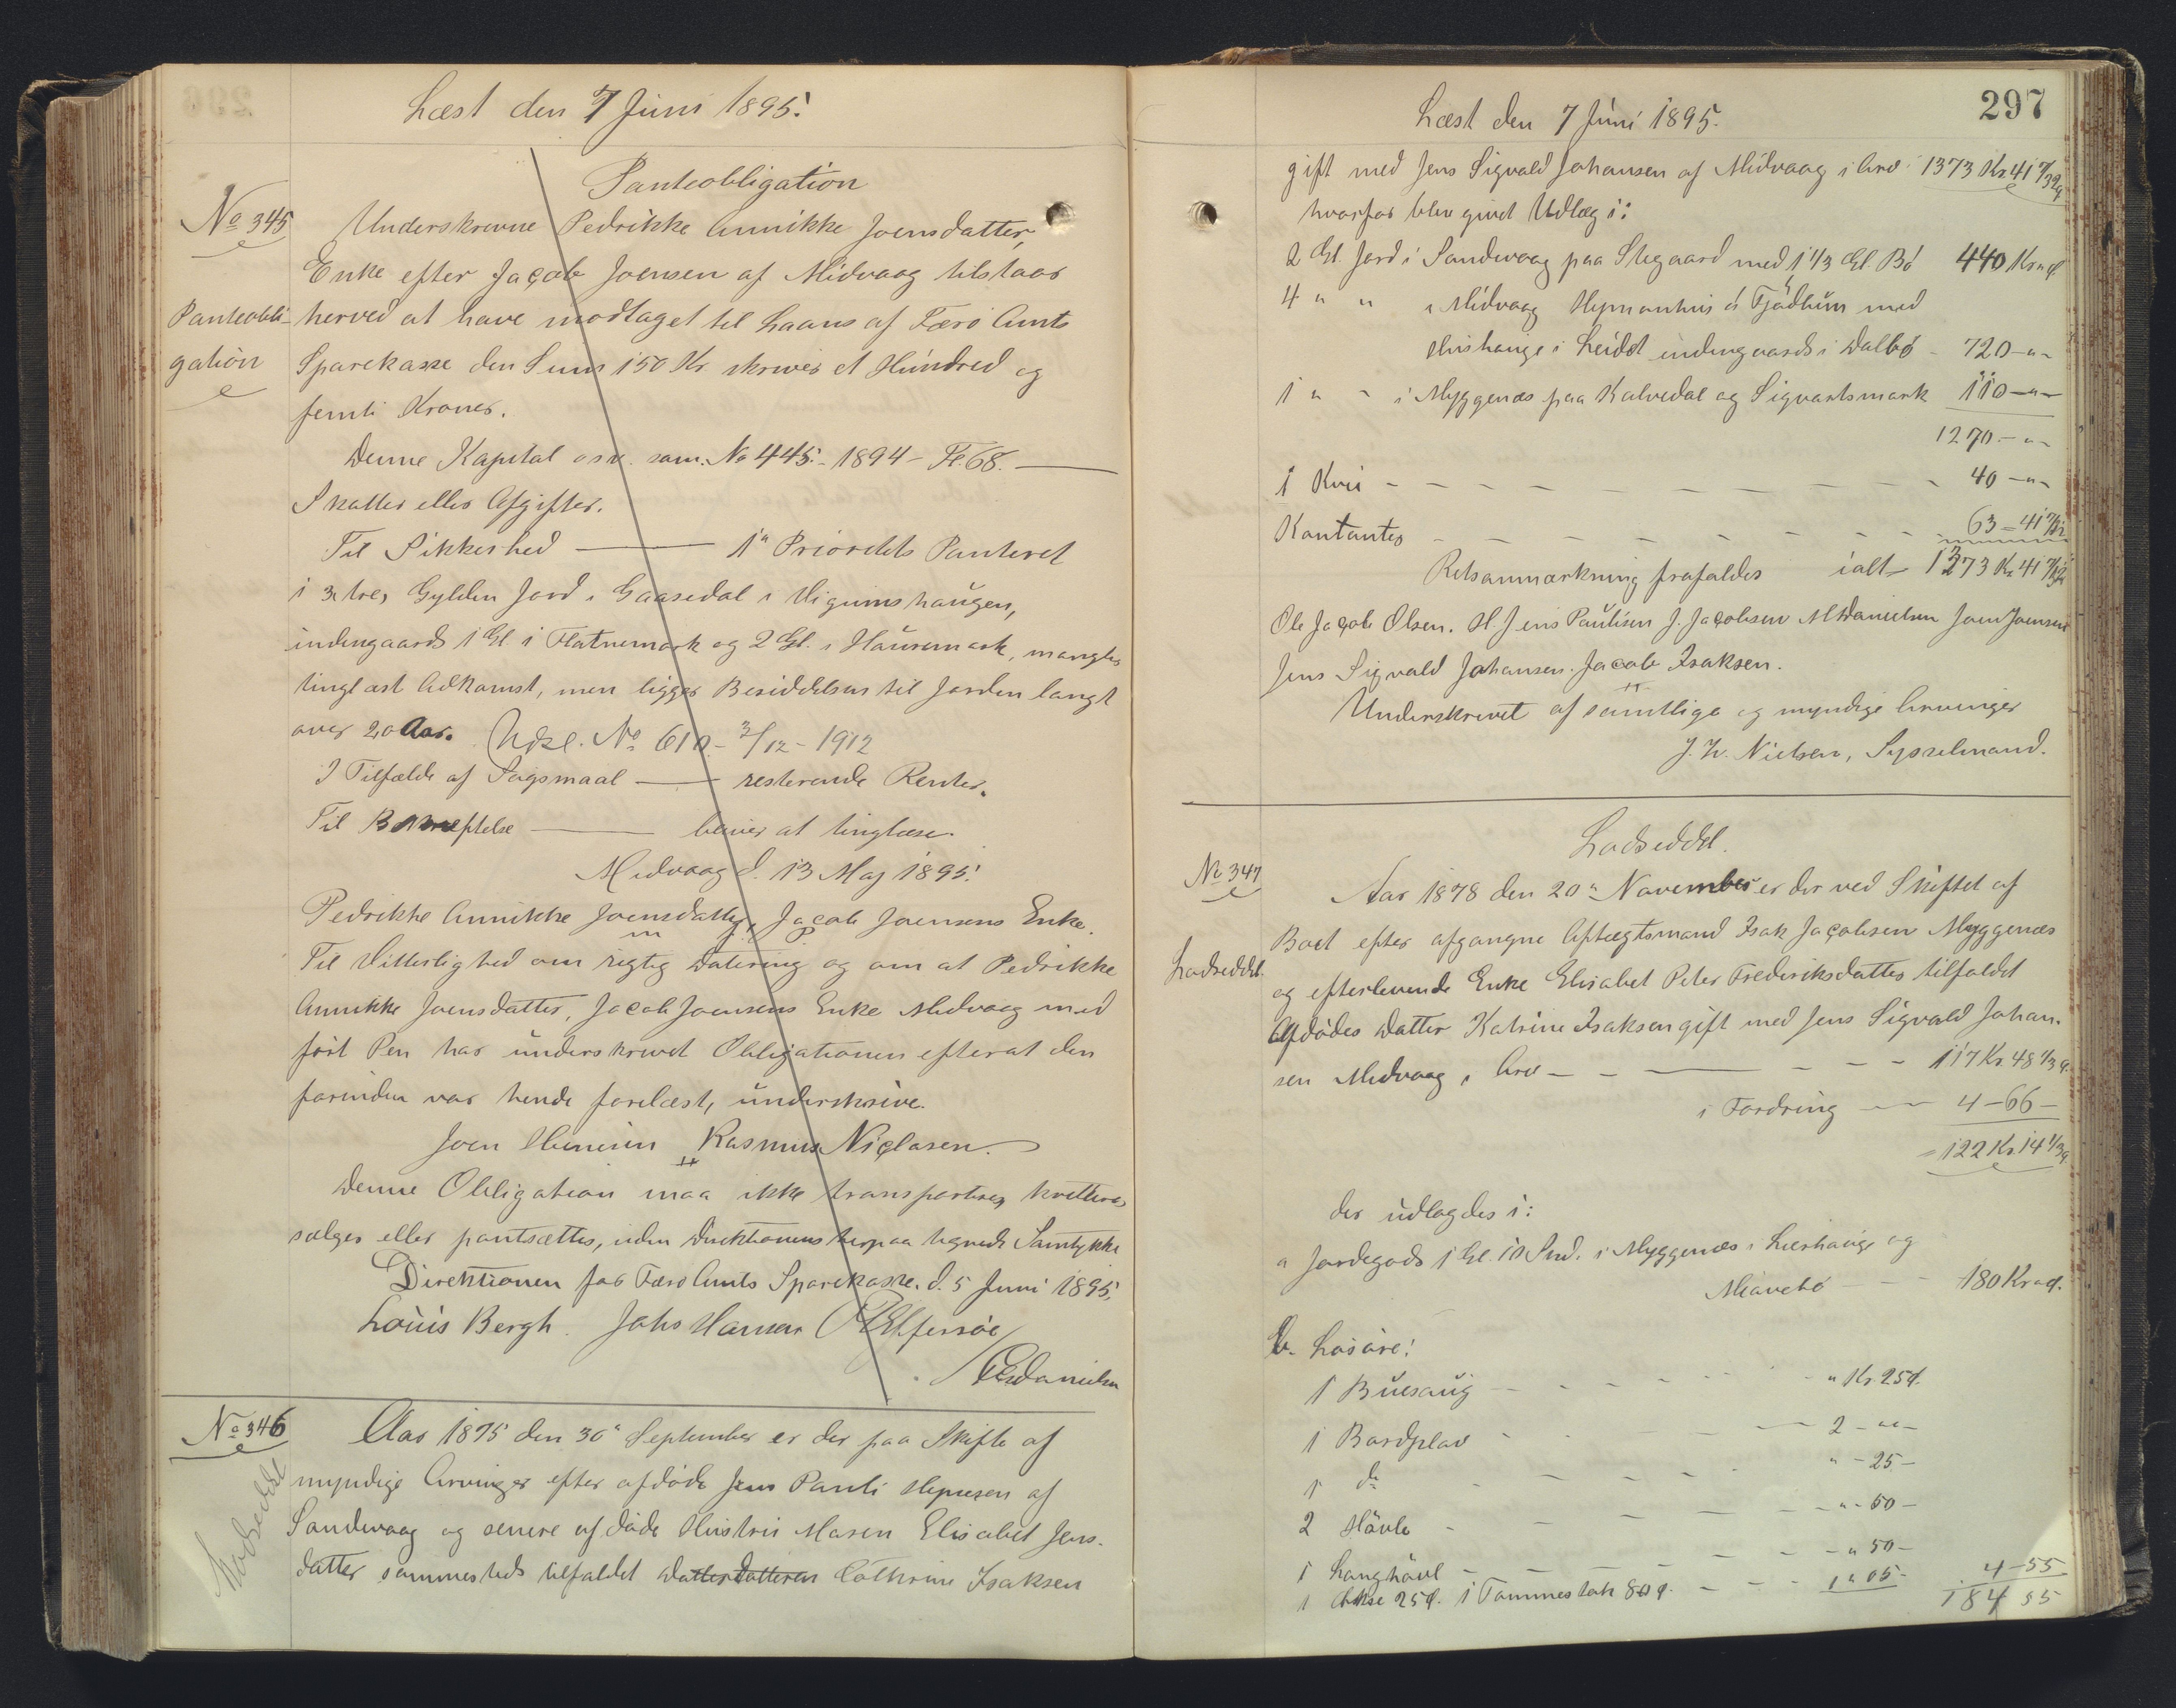 Læst den 7 Juni 1895.
Panteobligation
No 345
Underskrevne Pedrikke Annikke Joensdatter,
Enke efter Jacob Joensen af Midvaag tilstaar
Panteobli-
herved at have modtaget til Laans af Færø Amts
gation
Sparekasse den Sum 150 Kr skriver et Hundred og
femti Kroner.
Denne Kapital osv. som No 445 - 1894 - Fl. 68. —
Skatter eller Afgifter.
Til Sikkerhed — 1n Prioritets Panteret
i 3 tre, Gylden Jord i Gaasedal i
indengaards 1 Gl. i Flatnemark og 2 Gl. i Hausemark, mangler
tinglæst Adkomst, men ligger Besiddelsen til Jorden langt
over 20 Aar. Udsl. No 610 - 3/12 - 1912
I Tilfælde af Søgsmaal — resterende Renter.
Til Bekræftelse — bliver at tinglæse.
Midvaag d. 13 Maj 1895.
Pedrikke Annikke Joensdatter, Jacob Joensens Enke.
m. f. P.
Til Vitterlighed om rigtig Datering og om at Pedrikke
Annikke Joensdatter, Jacob Joensens Enke Midvaag med
ført Pen har underskrevet Obligationen efterat den
forinden var hende forelæst, underskrive.
Joen Rasmus Niclasen.
Denne Obligation maa ikke transporteres, kvitteres
sælges eller pantsættes, uden Direktionens herpaa tegnede Samtykke
Direktionen for Færø Amts Sparekasse. d. 5 Juni 1895.
Louis Bergh. Johs Hansen Effersøe
Danielsen
No 346
Aar 1875 den 30n September er der paa Skifte af
Lodseddel
myndige Arvinger efter afdøde Jens Pauli af
Sandevaag og senere afdøde Hustru Maren Elisabet Jens-
datter sammesteds tilfaldet Datterdatteren Cathrine Isaksen
297
Læst den 7 Juni 1895.
gift med Jens Sigvald Johansen af Midvaag i Arv 1373 Kr 41 7/32
hvorfor blev givet Udlæg i:
2 Gl. Jord i Sandevaag paa Stegaard med 1 1/3 Gl. Bø 440 Kr " Ø
4 " " i Midvaag á med
i indengaards i Dalbø - 720 - " -
1 " " i Myggenæs paa Kalvedal og Sigvartsmark 110 - " -
1270 - " -
1 Kvie - - - - - 40 - " -
Kontanter - - - - - 63 - 41 7/32
Retsanmærkning frafaldes ialt 1373 Kr 41 7/32
Ole Jacob Olsen. H. Jens Paulisen J. Jacobsen M Danielsen Joen Joensen
Jens Sigvald Johansen. Jacob Isaksen.
Underskrevet af samtlige og myndige Arvinger
J. W. Nielsen, Sysselmand.
Lodseddel.
No 347
Aar 1878 den 20n November er der ved Skiftet af
Boet efter afgangne Aftægtsmand Isak Jacobsen Myggenæs
Lodseddel.
og efterlevende Enke Elisabet Peter Frederiksdatter tilfaldet
Afdødes Datter Katrine Isaksen gift med Jens Sigvald Johan-
sen Midvaag, i Arv - - — - - 117 Kr 48 1/3 Ø.
i Fordring — 4 - 66 -
= 122 Kr 14 1/3 Ø
der udlagdes i:
a Jordegods 1 Gl. 10 Snd. i Myggenæs i og
Miavebø - - - 180 Kr " Ø.
b. Løsøre:
1 Buesaug - - - - " Kr 25 Ø.
1 Bordplov - - - 2 - " -
1 do - - - " - 25 -
2 Høvle - - - " - 50 -
1 Langhøvl - - - - " 50 -
1 Økse 25 Ø. 1 Tommestok 80 Ø. - - - 1 " 05 - 4 - 55
184 55